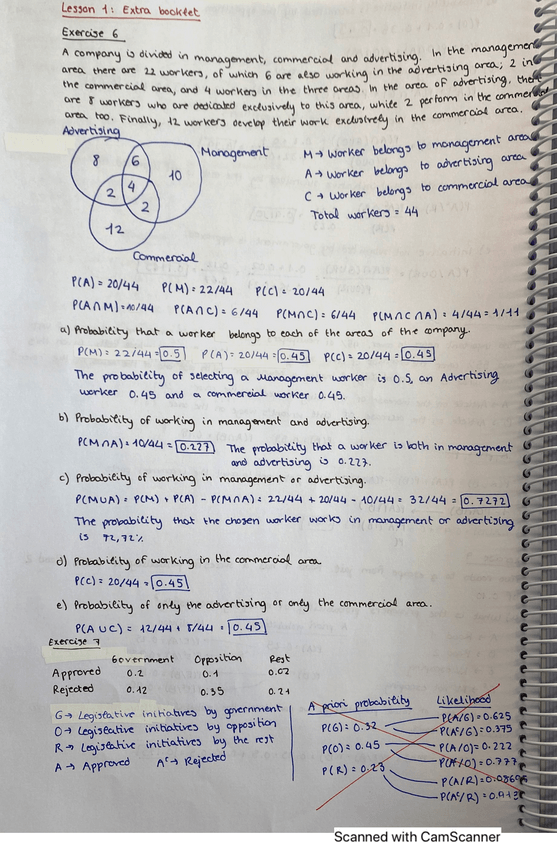 Lesson 1: Extra booklet
Exercise 6
A company is divided in management, commercial and advertising. In the management
area there are 22 workers, of which 6 are also working in the advertising area; 2 in
the commercial area, and 4 workers in the three areas. In the area of advertising, there
are 8 workers who are dedicated exclusively to this area, while 2 perform in the commercial
area too. Finally, 12 workers develop their work exclusively in the commercial area.
Advertising
Management
8 6 10
2 4 2
12
Commercial
M → Worker belongs to management area
A → Worker belongs to advertising area
C → Worker belongs to commercial area
Total workers = 44
P(A) = 20/44 P(M) = 22/44 P(C) = 20/44
P(A∩M) = 10/44 P(A∩C) = 6/44 P(M∩C) = 6/44 P(M∩C∩A) = 4/44 = 1/11
a) Probability that a worker belongs to each of the areas of the company.
P(M) = 22/44 = 0.5 P(A) = 20/44 = 0.45 P(C) = 20/44 = 0.45
The probability of selecting a Management worker is 0.5, an Advertising
worker 0.45 and a commercial worker 0.45.
b) Probability of working in management and advertising.
P(M∩A) = 10/44 = 0.227 The probability that a worker is both in management
and advertising is 0.227.
c) Probability of working in management or advertising.
P(M∪A) = P(M) + P(A) - P(M∩A) = 22/44 + 20/44 - 10/44 = 32/44 = 0.7272
The probability that the chosen worker works in management or advertising
is 72,72%
d) Probability of working in the commercial area
P(C) = 20/44 = 0.45
e) Probability of only the advertising or only the commercial area.
P(A∪C) = 12/44 + 8/44 = 0.45
Exercise 7
Government Opposition Rest
Approved 0.2 0.1 0.02
Rejected 0.12 0.35 0.21
G → Legislative initiatives by government
O → Legislative initiatives by opposition
R → Legislative initiatives by the rest
A → Approved Aᶜ → Rejected
A priori probability Likelihood
P(G) = 0.32
P(O) = 0.45
P(R) = 0.23
P(A/G) = 0.625
P(Aᶜ/G) = 0.375
P(A/O) = 0.222
P(Aᶜ/O) = 0.777
P(A/R) = 0.0869
P(Aᶜ/R) = 0.913
Scanned with CamScanner